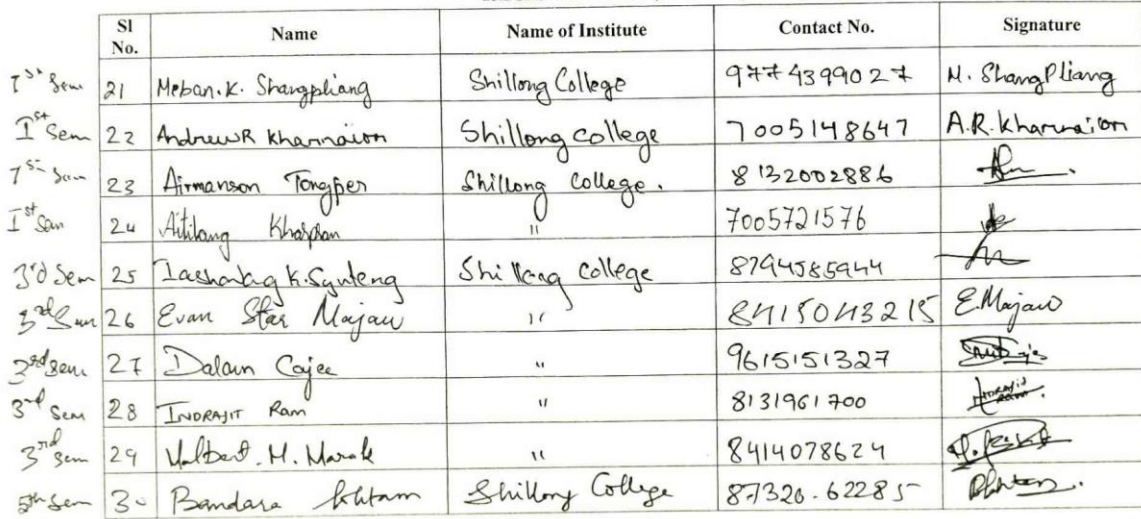 Sl No. Name Name of Institute Contact No. Signature
1st Sem 21 Meban.K. Shangpliang Shillong College 9774399027 M. Shangpliang
Ist Sem 22 Andrew R Kharnaior Shillong college 7005148647 A.R. Kharnaior
1st Sem 23 Airmanson Tongper Shillong College. 8132002886
Ist Sem 24 Aitilang " 7005721576
3rd Sem 25 K. Synteng Shillong college 8794585944
3rd Sem 26 Evan Star Majaw " 8415043215 E.Majaw
3rd Sem 27 Dalam Cajee " 9615151327
3rd Sem 28 INDRAJIT Ram " 8131961700 Indrajit Ram
3rd Sem 29 M. Marak " 8414078624
5th Sem 30 Bandara Shillong College 87320.62285